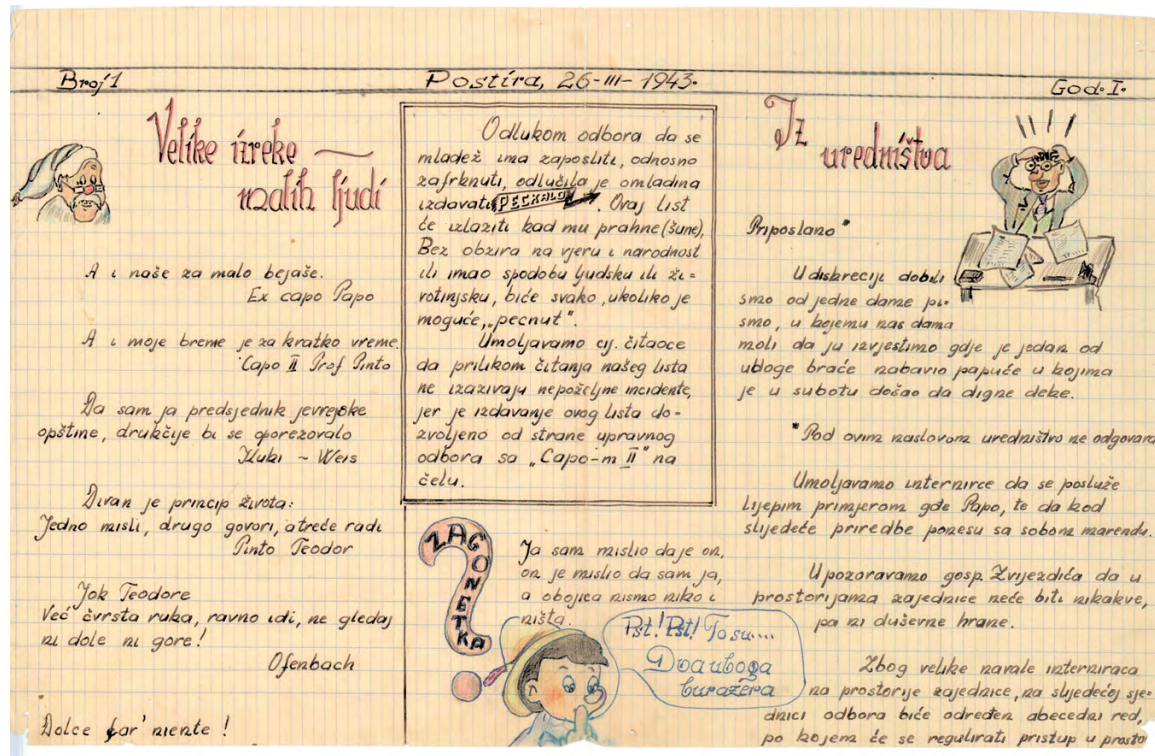 Broj 1
Postira, 26-III-1943.
God. I.
Velike izreke —
malih ljudi
A i naše za malo bejaše.
Ex capo Papo
A i moje breme je za kratko vreme.
Capo II Prof Pinto
Da sam ja predsjednik jevrejske
opštine, drukčije bi se oporezovalo
Kuki - Weis
Divan je princip života:
Jedno misli, drugo govori, a treće radi
Pinto Teodor
Jok Teodore
Već čvrsta ruka, ravno idi, ne gledaj
ni dole ni gore!
Ofenbach
Dolce far' niente!
Odlukom odbora da se
mladež ima zaposliti, odnosno
zafrknuti, odlučila je omladina
izdavati PECKALO. Ovaj list
će izlaziti kad mu prahne (šune),
Bez obzira na vjeru i narodnost
ili imao spodobu ljudsku ili ži-
votinjsku, biće svako, ukoliko je
moguće, „pecnut".
Umoljavamo cij. čitaoce
da prilikom čitanja našeg lista
ne izazivaju nepoželjne incidente,
jer je izdavanje ovog lista do-
zvoljeno od strane upravnog
odbora sa „Capo-m II" na
čelu.
ZAGONETKA
Ja sam mislio da je on,
on je mislio da sam ja,
a obojica nismo niko i
ništa.
Pst! Pst! To su....
Dva uboga
burazera
Iz
uredništva
Priposlano*
U diskreciji dobili
smo od jedne dame pi-
smo, u kojemu nas dama
moli da ju izvjestimo gdje je jedan od
uboge braće nabavio papuče u kojima
je u subotu došao da digne deke.
*Pod ovim naslovom uredništvo ne odgovara
Umoljavamo internirce da se posluže
lijepim primjerom gđe Papo, te da kod
slijedeće priredbe ponesu sa sobom marendu.
Upozoravamo gosp. Zvijezdića da u
prostorijama zajednice neće biti nikakve,
pa ni duševne hrane.
Zbog velike navale interniraca
na prostorije zajednice, na slijedećoj sje-
dnici odbora biće određen abecedni red,
po kojem će se regulirati pristup u prosto